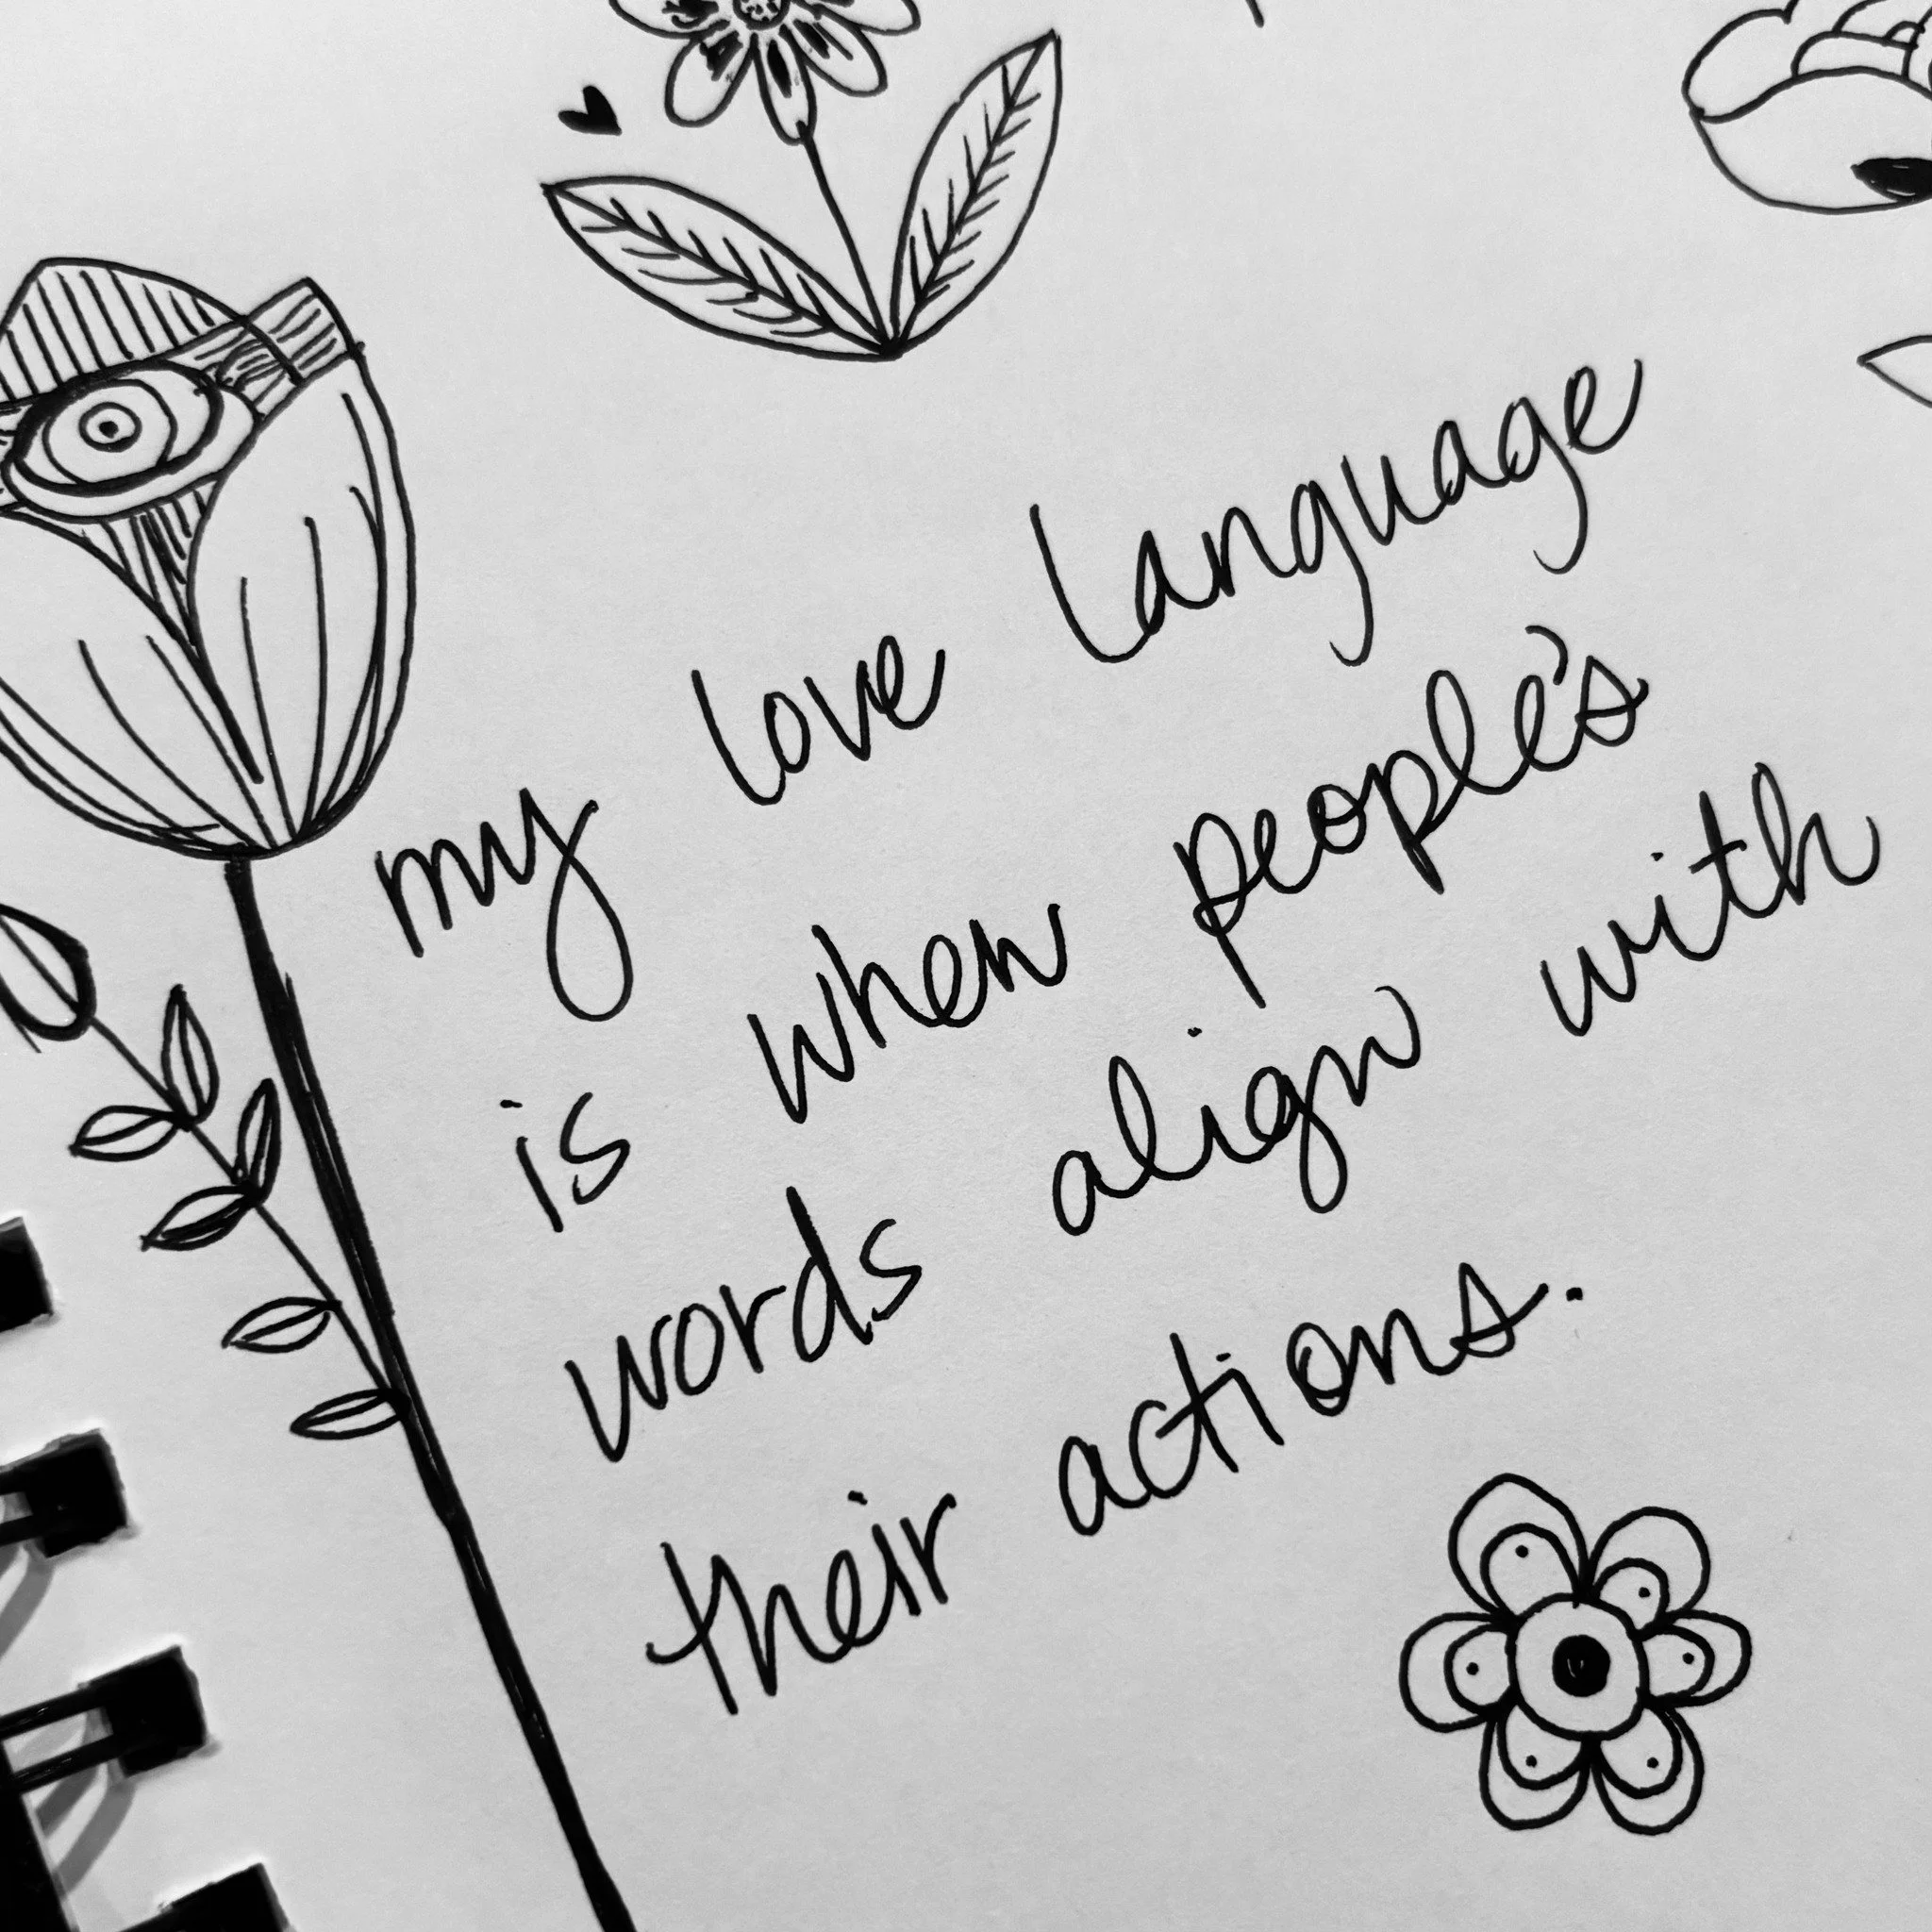 my love language
is when people's
words align with
their actions.